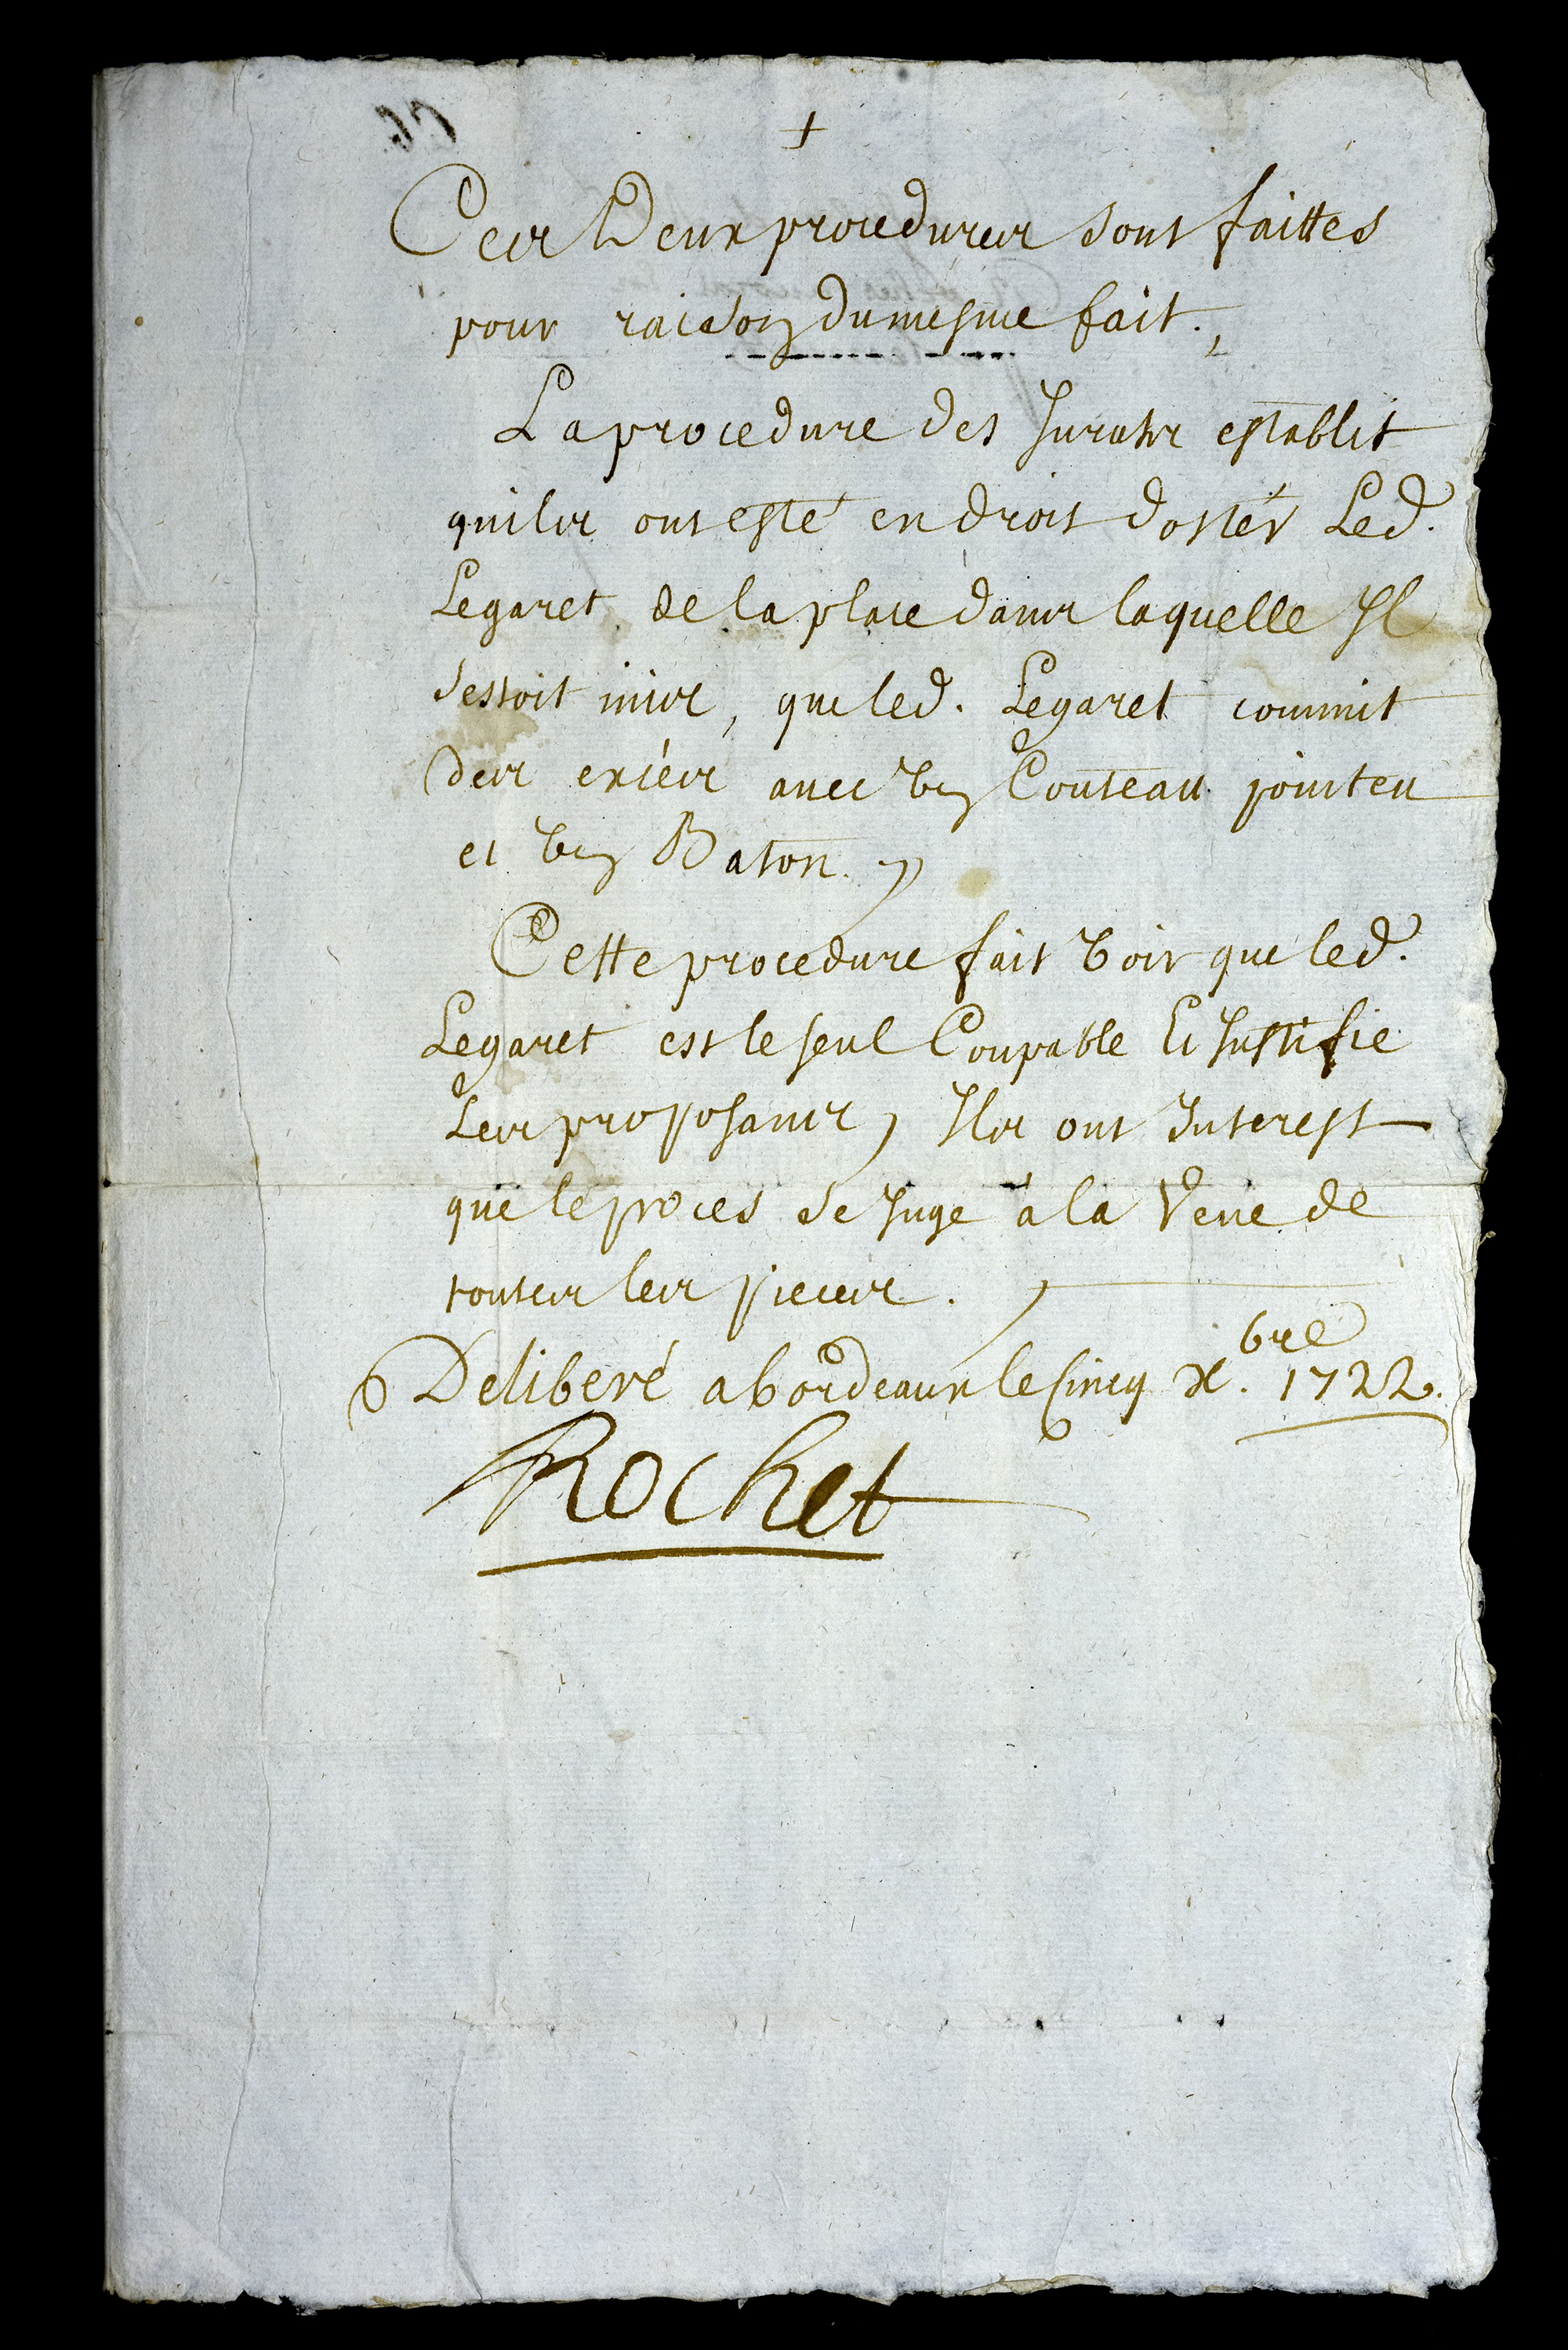 +
Ces Deux procedures sont faittes
pour raison du mesme fait.,
La procedure des Jurats establit
quils ont esté en droit doster Led.
Legaret de la place dans laquelle Jl
sestoit mis, que led. Legaret commit
des exces avec vn Couteau pointeu
et vn Baton.
Cette procedure fait voir que led.
Legaret est le seul Coupable Et Justifie
Les proposans, Jls ont Interest
que le proces se Juge à la veue de
toutes les pieces.
Deliberé a bordeaux le Cincq Xbre. 1722.
Rochet